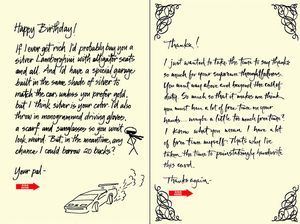 Happy Birthday!
If I ever get rich I'd probably buy you a
silver Lamborghini with alligator seats
and all. And I'd have a special garage
built in the same shade of silver to
match the car, unless you prefer gold,
but I think silver is your color. I'd also
throw in monogrammed driving gloves,
a scarf and sunglasses so you won't
look weird. But, in the meantime, any
chance I could borrow 20 bucks?
Your pal-
Thanks!
I just wanted to take the time to say thanks
so much for your supreme thoughtfulness.
You went way above and beyond the call of
duty. So much so that it makes me think
you must have a lot of free time on your
hands — maybe a little too much free time?
I know what you mean. I have a lot
of free time myself. That's why I've
taken the time to painstakingly handwrite
this card.
Thanks again-